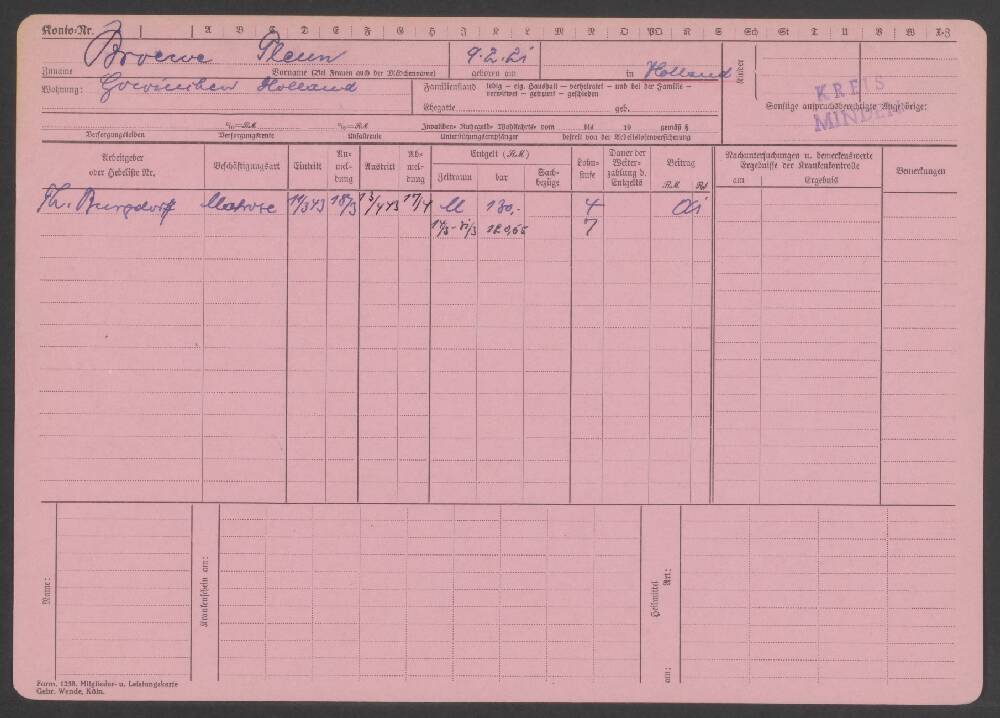 Konto-Nr. A B C D E F G H J K L M N O PQ R S Sch St T U V W X-Z
Broewe Pleun 9.2.21 Holland
Zuname Vorname (Bei Frauen auch der Mädchenname) geboren am in Kinder
Wohnung: Holland
Familienstand: ledig – eig. Haushalt – verheiratet – und bei der Familie –
verwitwet – getrennt – geschieden
Ehegatte geb.
KREIS
MINDEN
Sonstige anspruchsberechtigte Angehörige:
%=RM %=RM Invaliden- Ruhegeld- Wohlfahrts- vom bis 19 gemäß §
Versorgungsleiden Versorgungsrente Unfallrente Unterstützungsempfänger befreit von der Arbeitslosenversicherung
Arbeitgeber
oder Hebeliste Nr.
Beschäftigungsart
Eintritt
An-
mel-
dung
Austritt
Ab-
mel-
dung
Entgelt (RM)
Zeitraum bar Sach-
bezüge
Lohn-
stufe
Dauer der
Weiter-
zahlung d.
Entgelts
Beitrag
RM Rpf
Nachuntersuchungen u. bemerkenswerte
Ergebnisse der Krankenkontrolle
am Ergebnis
Bemerkungen
Th. Burgdorf Matrose 14/3 43 18/3 13/4 43 17/4 M 130,- 4
14/3-31/3 120,65 7
Name:
Krankenschein am:
Heilmittel
Art:
am:
Form. 1258. Mitglieder- u. Leistungskarte
Gebr. Wende, Köln.